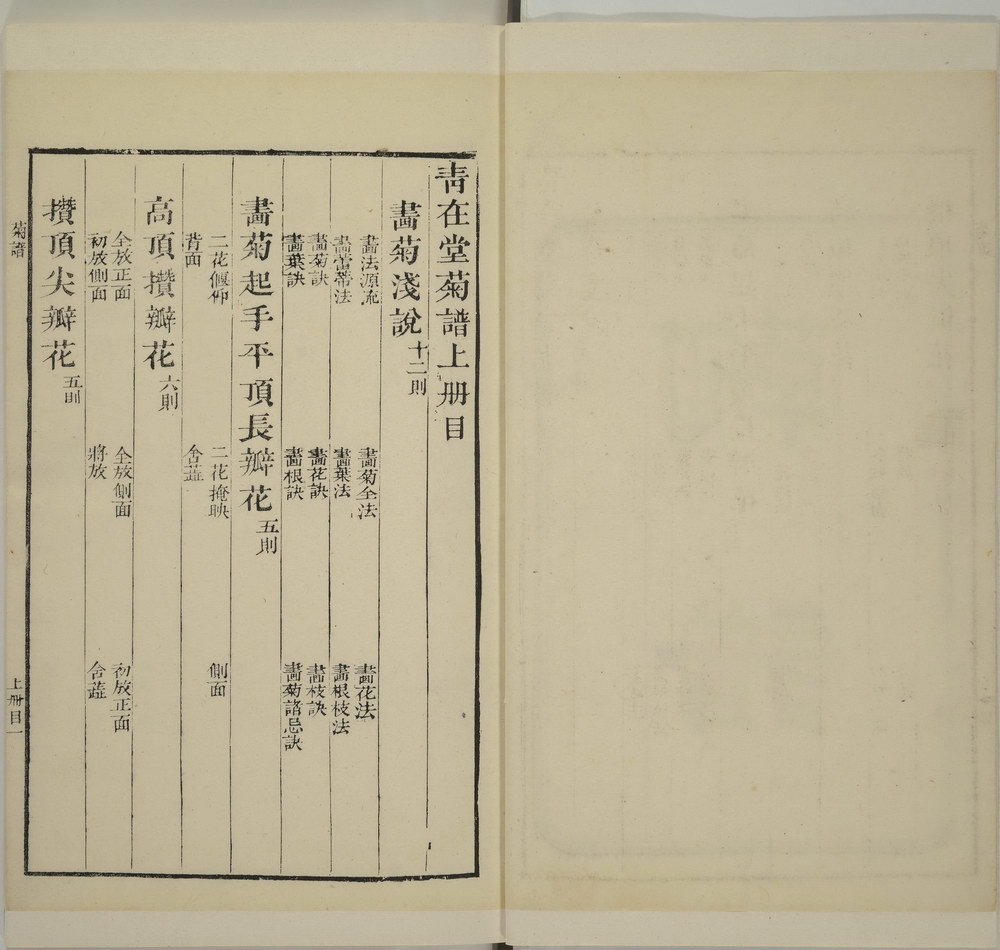 青在堂菊譜上册目
畫菊淺說 十二則
畫法源流 畫菊全法 畫花法
畫蕾蒂法 畫葉法 畫根枝法
畫菊訣 畫花訣 畫枝訣
畫葉訣 畫根訣 畫菊諸忌訣
畫菊起手平頂長瓣花 五則
二花偃仰 二花掩映 側面
背面 含蕋
高頂攢瓣花 六則
全放正面 全放側面 初放正面
初放側面 將放 含蕋
攢頂尖瓣花 五則
菊譜 上册目一